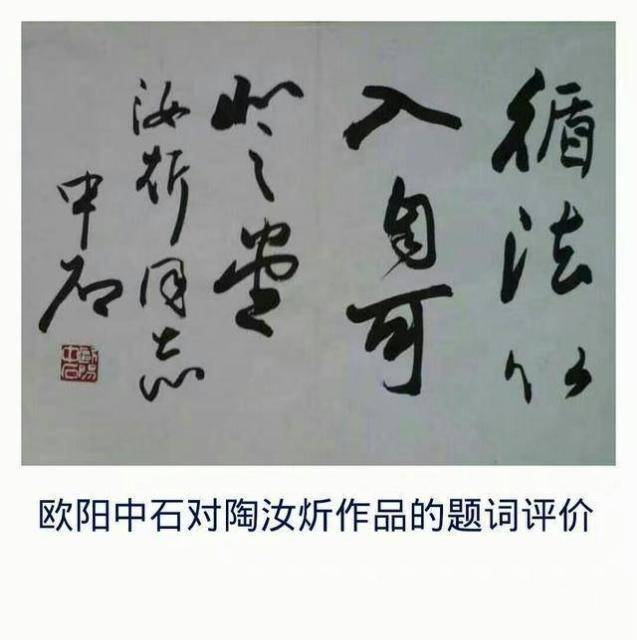 循法以
入自可
登之堂
汝炘同志
中石
欧阳中石对陶汝炘作品的题词评价